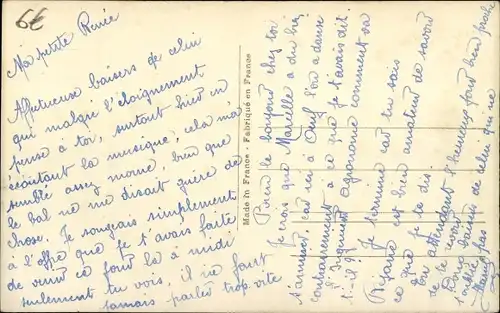 6€
Ma petite Renée
Affectueux baisers de celui
qui malgré l'éloignement
pense à toi, surtout hier en
écoutant la musique, cela m'a
semblé assez morne, bien que
le bal ne me disait guère de
chose. Je songeais simplement
à l'offre que je t'avais faite
de venir ce fond là à midi
seulement tu vois, il ne faut
jamais parler trop vite
Made in France - Fabriqué en France
Bien le bonjour chez toi
Je crois que Marcelle a du bien
s'amuser, car ici à l'on a dansé
contrairement à ce que je t'avais dit.
agronome comment va
t-il ??
Je termine car tu sais
est bien amateur de savoir
ce que je te dis
En attendant l'heureux jour bien proche
de te revoir
Bons baisers de celui qui ne
t'oublie pas